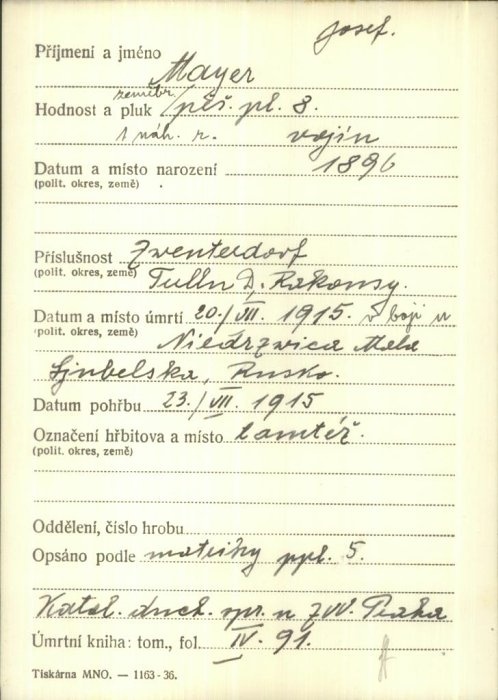 Josef.
Příjmení a jméno Mayer
zeměbr.
Hodnost a pluk pěš. pl. 8.
1 náh. r. vojín
Datum a místo narození 1896
(polit. okres, země)
Příslušnost Zwentendorf
(polit. okres, země) Tulln D. Rakousy.
Datum a místo úmrtí 20./VII. 1915. v boji u
(polit. okres, země) Niedrzwica Mala
Ljubelska, Rusko.
Datum pohřbu 23./VII. 1915
Označení hřbitova a místo tamtéž.
(polit. okres, země)
Oddělení, číslo hrobu
Opsáno podle matriky ppl. 5.
Katol. duch. spr. u ZVV. Praha
Úmrtní kniha: tom., fol. IV. 91.
Tiskárna MNO. — 1163-36.